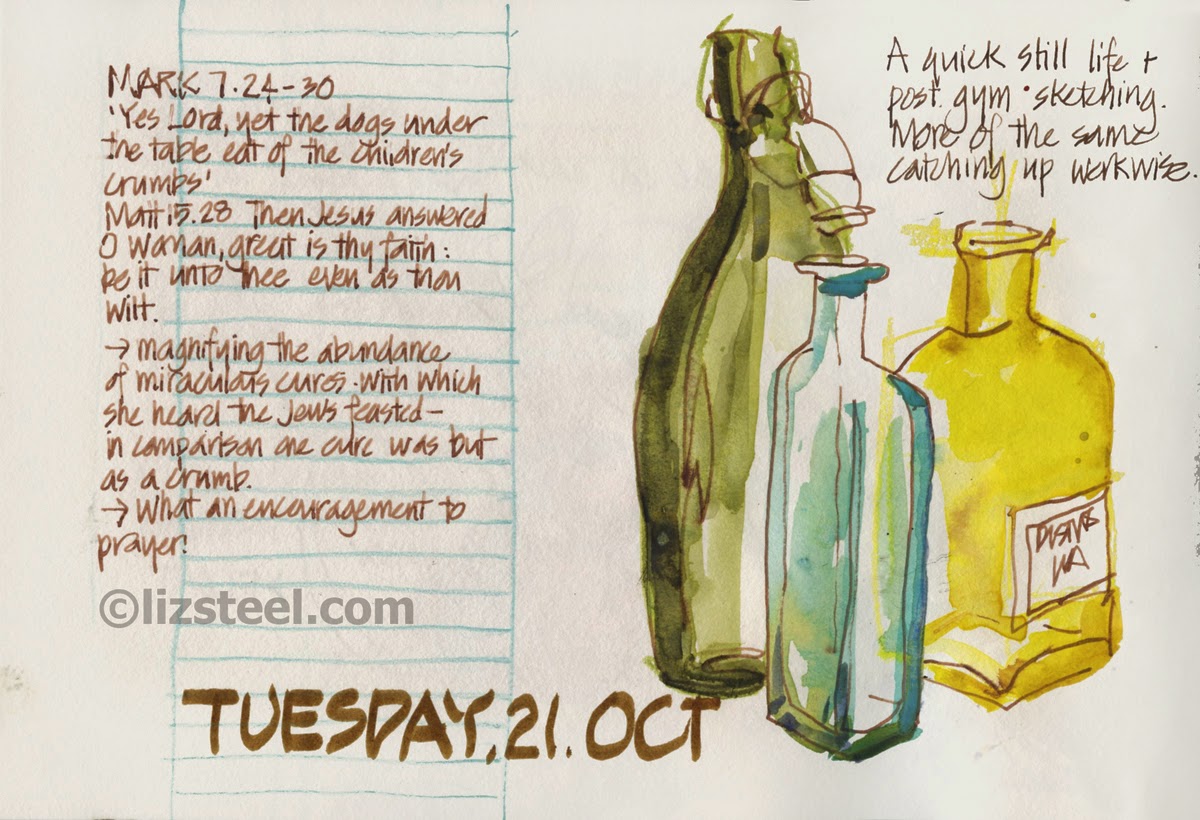 MARK 7.24-30
'Yes Lord, yet the dogs under
the table eat of the children's
crumbs'
Matt 15.28 Then Jesus answered
O Woman, great is thy faith:
be it unto thee even as thou
wilt.
→ magnifying the abundance
of miraculous cures with which
she heard the Jews feasted -
in comparison one cure was but
as a crumb.
→ What an encouragement to
prayer!
©lizsteel.com
TUESDAY, 21. OCT
A quick still life +
post gym sketching.
More of the same
catching up workwise.